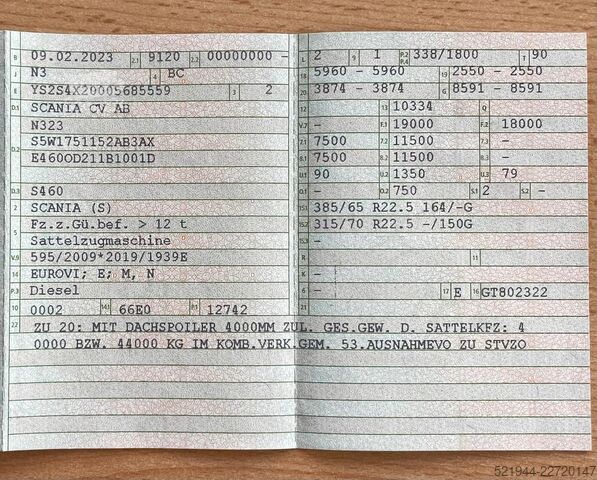 B 09.02.2023 2.1 9120 2.2 00000000 - L 2 9 1 P.2 P.4 338/1800 T 90
J N3 4 BC 18 5960 - 5960 19 2550 - 2550
E YS2S4X20005685559 3 2 20 3874 - 3874 G 8591 - 8591
D.1 SCANIA CV AB 12 - 13 10334 Q
N323 V.7 - F.1 19000 F.2 18000
D.2 S5W1751152AB3AX 7.1 7500 7.2 11500 7.3 -
E460OD211B1001D 8.1 7500 8.2 11500 8.3 -
U.1 90 U.2 1350 U.3 79
D.3 S460 O.1 - O.2 750 S.1 2 S.2 -
2 SCANIA (S) 15.1 385/65 R22.5 164/-G
5 Fz.z.Gü.bef. > 12 t 15.2 315/70 R22.5 -/150G
Sattelzugmaschine 15.3 -
V.9 595/2009*2019/1939E R 11
14 EUROVI; E; M, N K -
P.3 Diesel 6 - 17 E 16 GT802322
10 0002 14.1 66E0 P.1 12742 21
22 ZU 20: MIT DACHSPOILER 4000MM ZUL. GES.GEW. D. SATTELKFZ: 4
0000 BZW. 44000 KG IM KOMB.VERK.GEM. 53.AUSNAHMEVO ZU STVZO
521944-22720147